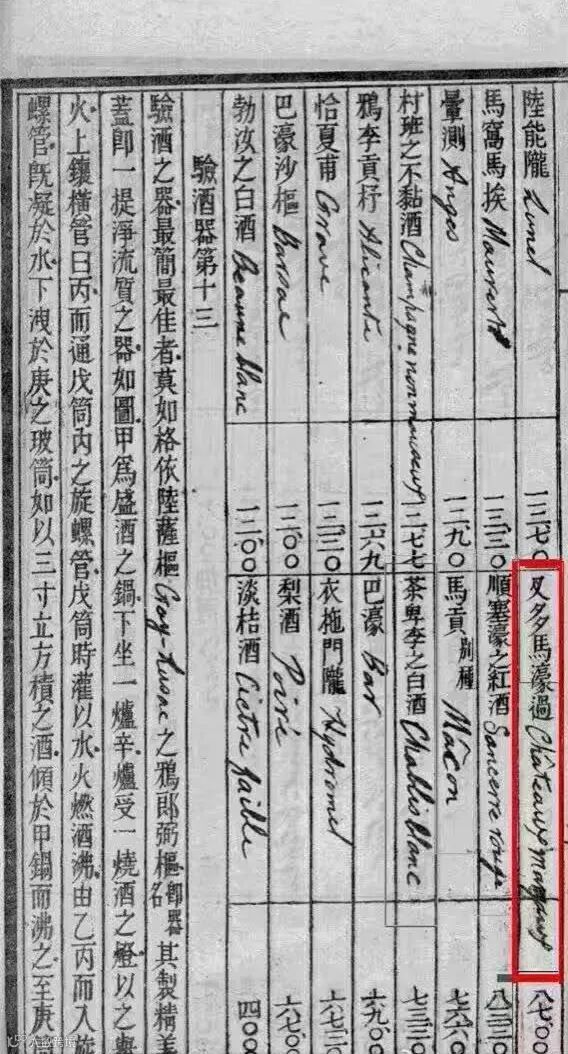 陸能隴 Lunel 一二、七〇
馬窩馬挨 一三、三〇
暈測 Anges 一二、九〇
村班之不黏酒 Champagne non mousseux 一二、七七
鴉李貢杍 Alicante 一二、六九
恰夏甫 Grave 一二、三〇
巴濠沙樞 Barsac 一二、〇〇
勃汝之白酒 Beaune blanc 一二、〇〇
叉多馬濠過 Châteaux 八、七〇
順塞濠之紅酒 Sancerre rouge 八、三三
馬貢別種 Mâcon 七、六六
茶卑李之白酒 Chablis blanc 七、三三
巴濠 Bar 六、九〇
衣拖門隴 Hydromel
梨酒 Poiré
淡桔酒 Cidre faible 四、〇〇
驗酒器第十三
驗酒之器最簡最佳者莫如格依陸薩樞 Gay-Lusac 之鴉郎弼樞卽器名其製精美
蓋卽一提淨流質之器如圖甲爲盛酒之鍋下坐一爐辛爐受一燒酒之燈以之與
火上鑲橫管曰丙而通戊筒內之旋螺管戊筒時灌以水火燃酒沸由乙丙而入旋
螺管旣凝於水下洩於庚之玻筒如以三寸立方積之酒傾於甲鍋而沸之至庚